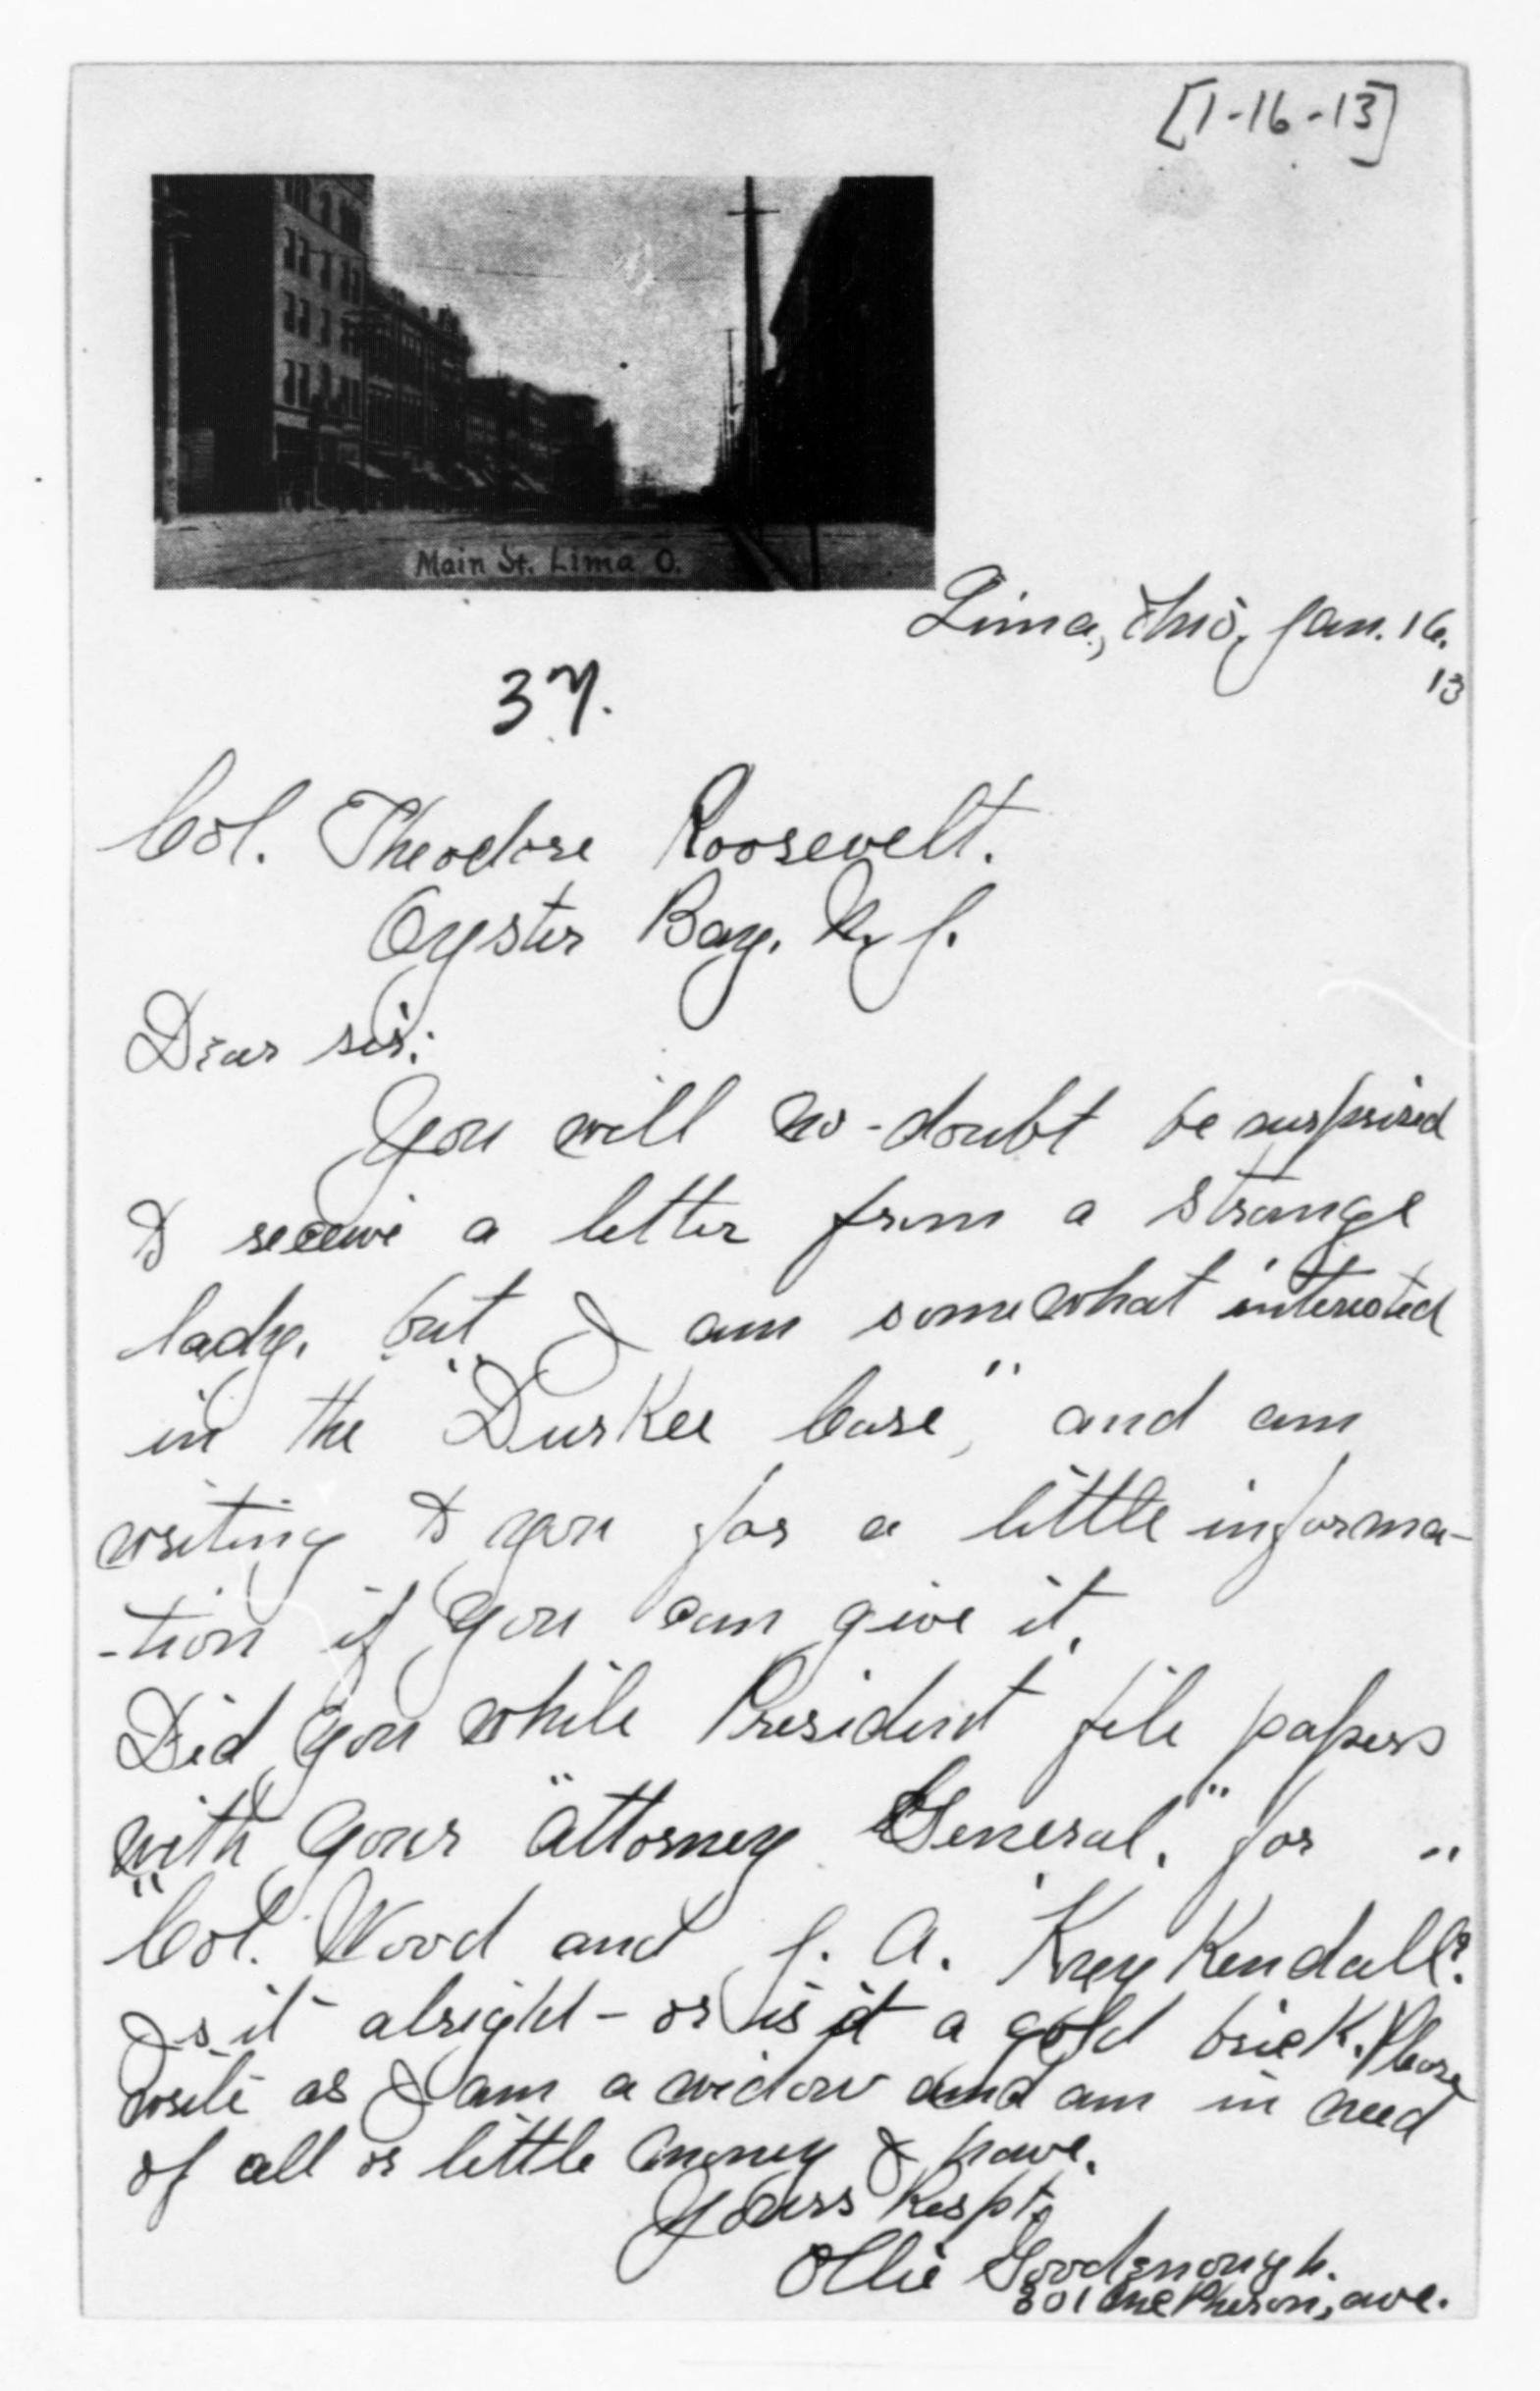 [1-16-13]
Main St. Lima O.
Lima, Ohio, Jan. 16.
13
37.
Col. Theodore Roosevelt.
Oyster Bay. N. J.
Dear sir:
You will no-doubt be surprised
to receive a letter from a strange
lady. but I am somewhat interested
in the "Durkee Case", and am
writing to you for a little informa-
-tion if you can give it.
Did you while President file papers
with your "Attorney General." for "
"Col. Wood and J. A. KuyKendall?
Is it alright - or is it a gold brick. Please
write as I am a widow and am in need
of all or little money I have.
Yours Respt.
Ollie Goodenough.
801 McPherson, ave.